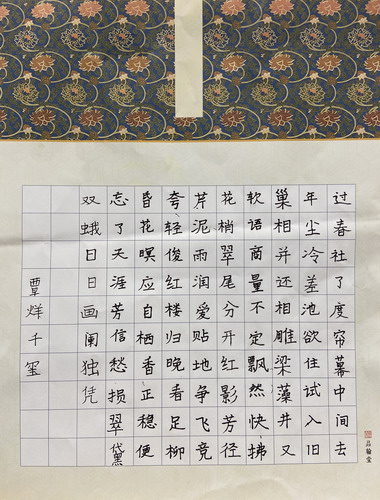 过春社了度帘幕中间去
年尘冷差池欲住试入旧
巢相并还相雕梁藻井又
软语商量不定飘然快拂
花梢翠尾分开红影芳径
芹泥雨润爱贴地争飞竞
夸轻俊红楼归晚看足柳
昏花暝应自栖香正稳便
忘了天涯芳信愁损翠黛
双蛾日日画阑独凭
覃烊千玺
品翰堂